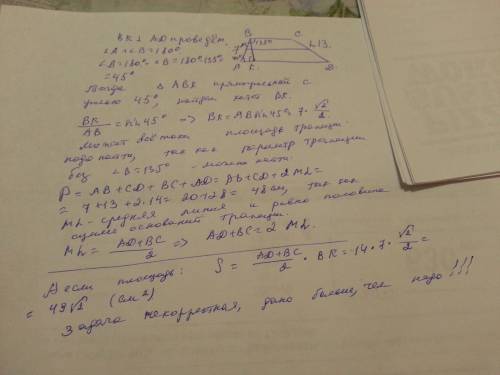 BK ⊥ AD проведём.
∠A + ∠B = 180°
∠A = 180° - ∠B = 180° - 135°
= 45°
B C
135°
M L 13
A K D
Тогда △ ABK прямоугольный с
углом 45°, найдём катет BK.
BK/AB = sin 45° => BK = AB sin 45° = 7 · √2/2
Может всё таки площадь трапеции
надо найти, так как периметр трапеции
без ∠B = 135° - можно найти.
P = AB + CD + BC + AD = AB + CD + 2ML =
= 7 + 13 + 2 · 14 = 20 + 28 = 48 см, так как
ML - средняя линия и равна половине
сумме оснований трапеции.
ML = AD + BC / 2 => AD + BC = 2 ML.
А если площадь: S = AD + BC / 2 · BK = 14 · 7 · √2/2 =
= 49√2 (см 2)
Задача некорректная, дано больше, чем надо!!!